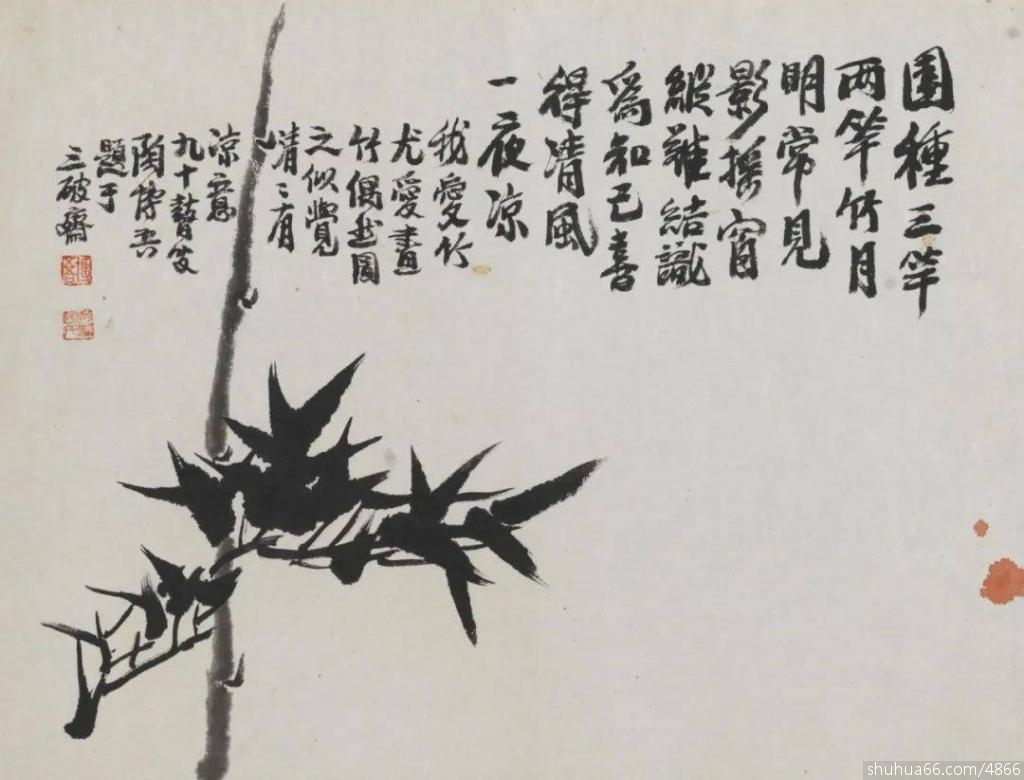 園種三竿
兩竿竹月
明常見
影搖窗
縱難結識
為知己喜
得清風
一夜涼
我愛竹
尤愛畫
竹偶然圖
之似覺
清二有
涼意
九十瞽叟
陶博吾
題于
三破齋
shuhua66.com/4866